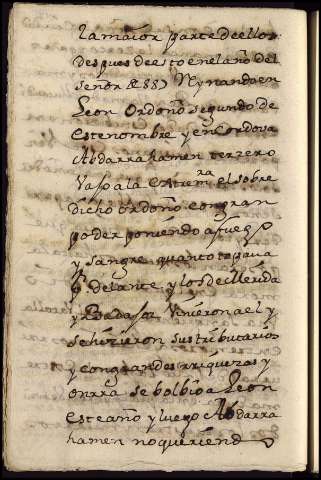 la maior parte de ellos
despues de esto en el año del
señor de 887 Rynando en
Leon Ordoño segundo de
este nombre y en Cordova
Abdarrahamen terzero
Vajo a la Extrem^ra el sobre
dicho ordoño con gran
poder poniendo a fuego
y sangre quanto topava
p^r delante y los de Merida
y Badajoz Vinieron a el y
se hizieron sus tributarios
y con grandes rriquezas y
onrra se bolbio a Leon
este año y luego Abdarra
hamen no queriendo